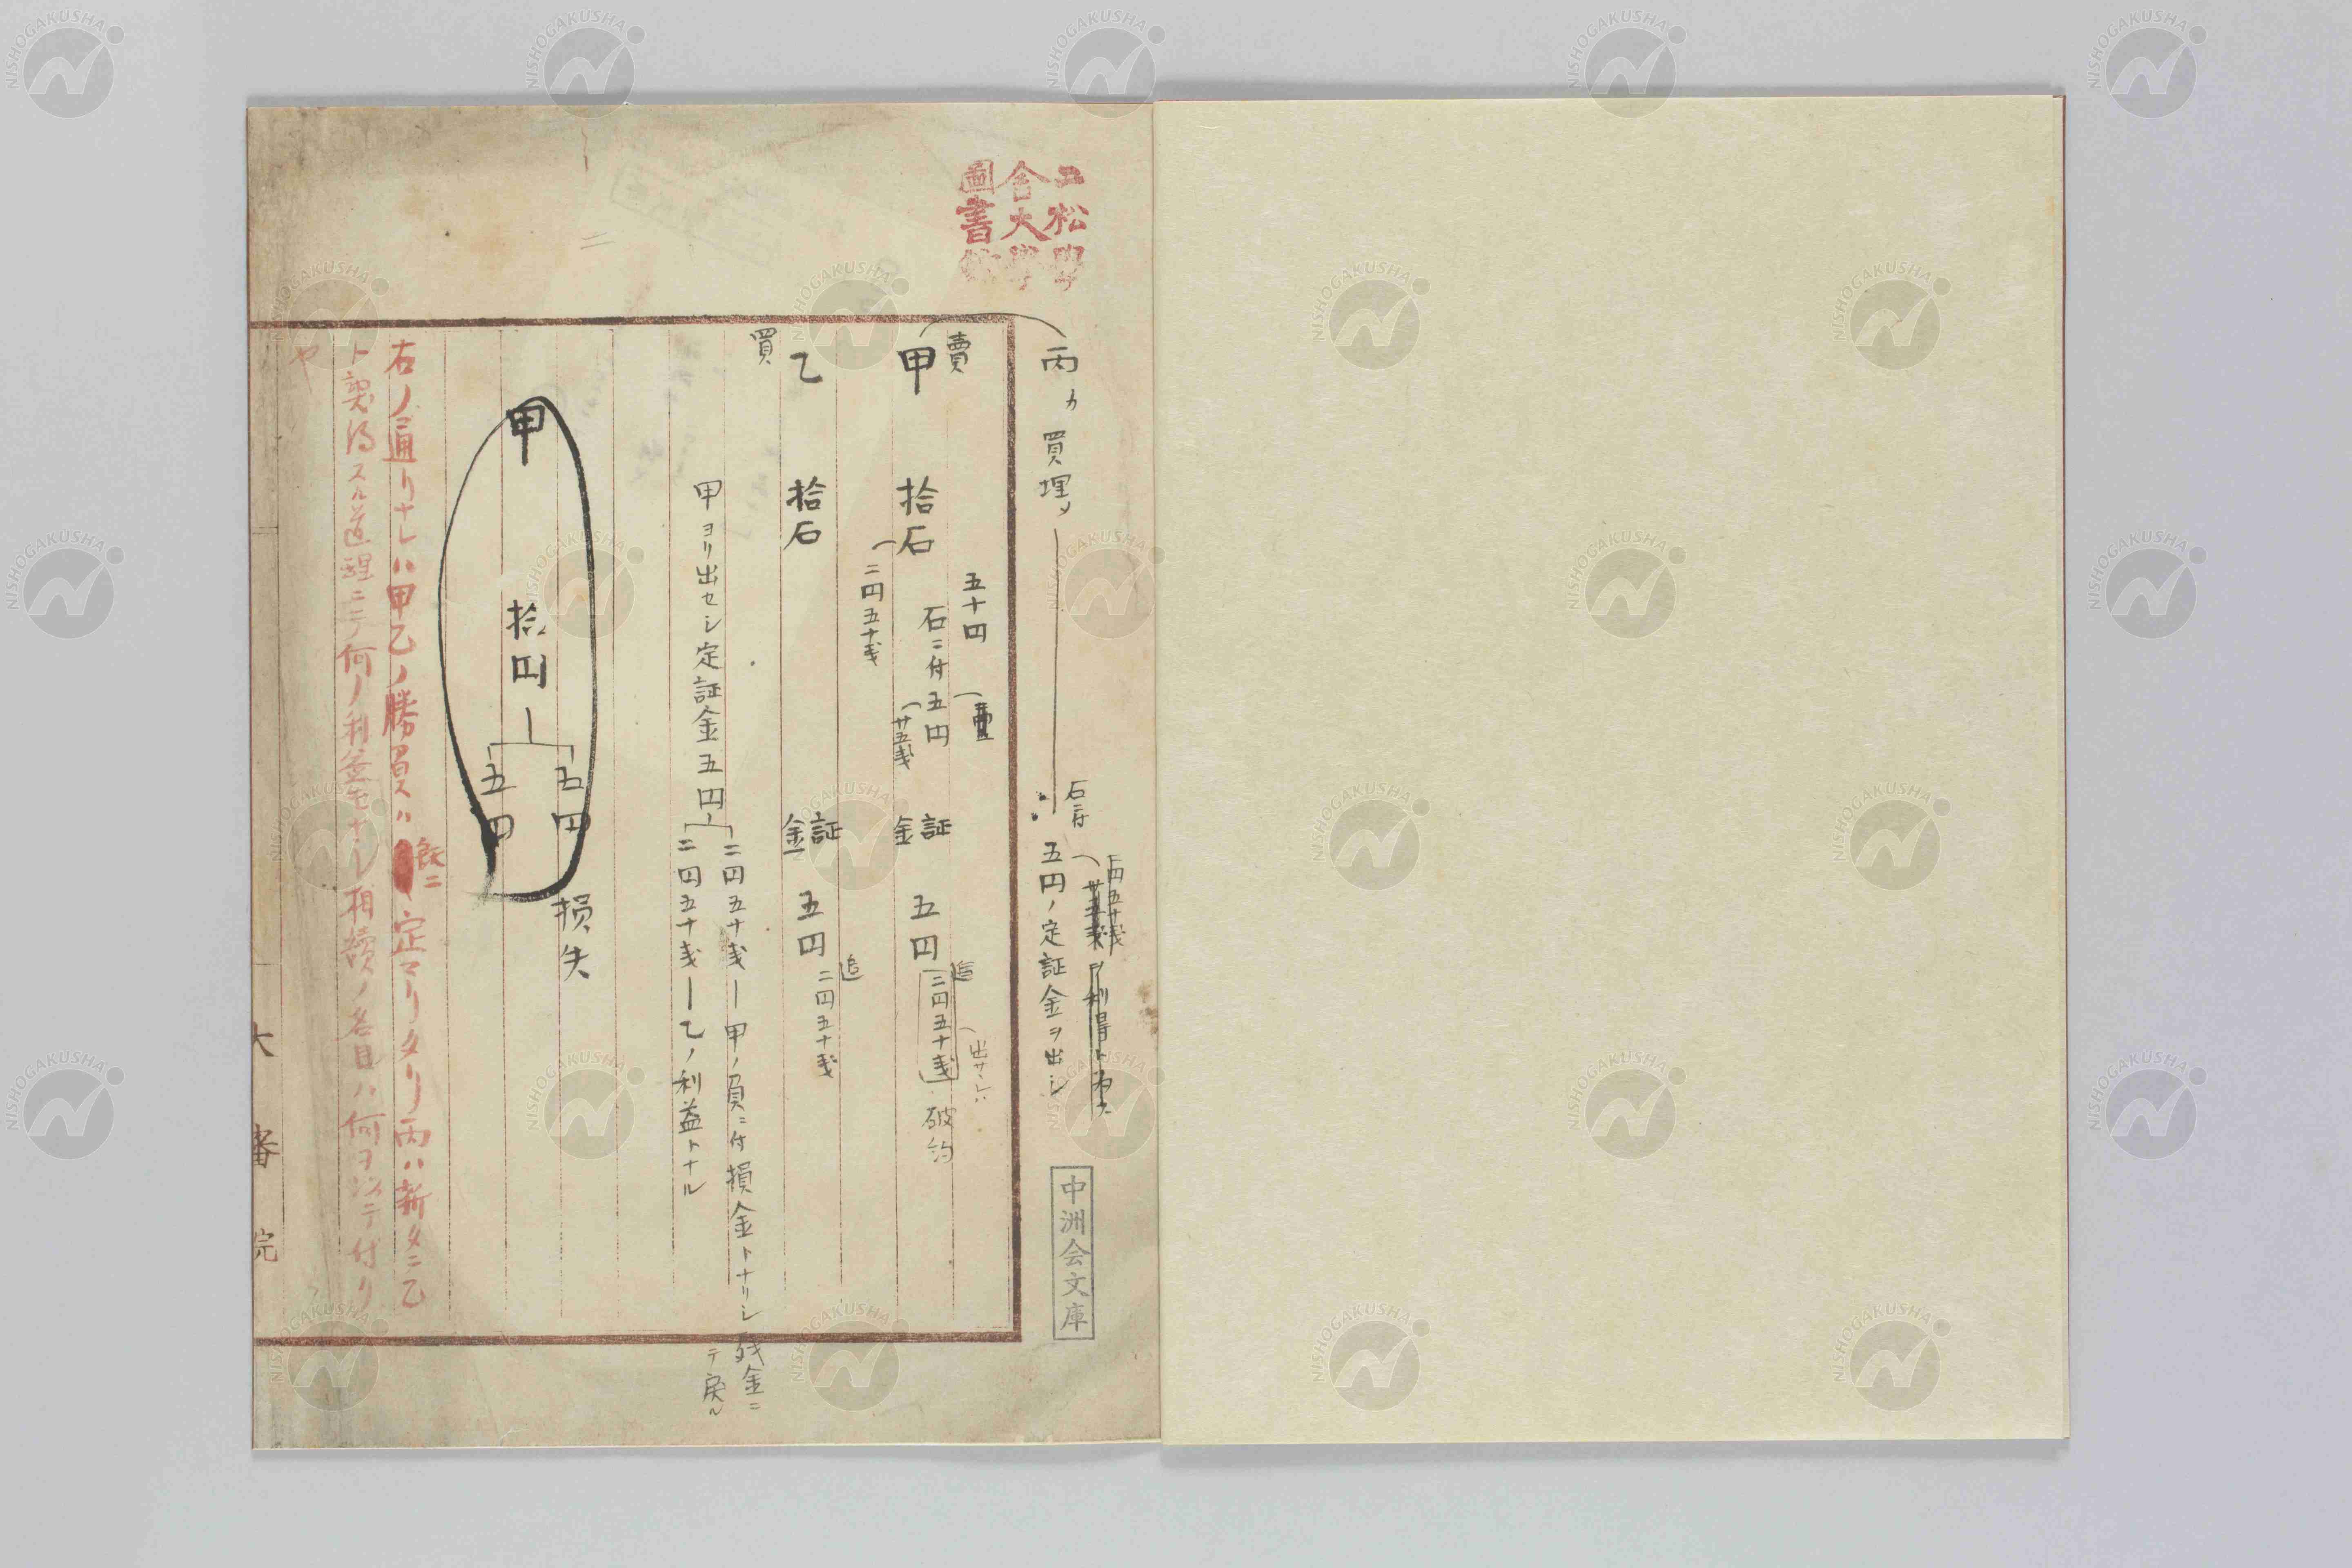 二松學
舍大學
圖書館
丙カ買埋ノ
石ニ付
五円ノ定証金ヲ出シ
二円五十戋
廿五戋
ヲ利得ト
中洲会文庫
賣
甲 拾石 石ニ付五円 証金 五円 二円五十戋 破約
五十円
廿五戋
追
出サレハ
二円五十戋
買
乙 拾石 証金 五円 二円五十戋
追
甲ヨリ出セシ定証金五円
二円五十戋―甲ノ負ニ付損金トナリシ残金ニ
テ戻ル
二円五十戋―乙ノ利益トナル
甲 拾円
五円
五円
損失
右ノ通リナレハ甲乙ノ勝負ハ既ニ定マリタリ丙ハ新タニ乙
ト契約スル道理ニテ何ノ利益モナシ相続ノ名目ハ何ヲ以テ付リ
や
大審院
NISHOGAKUSHA